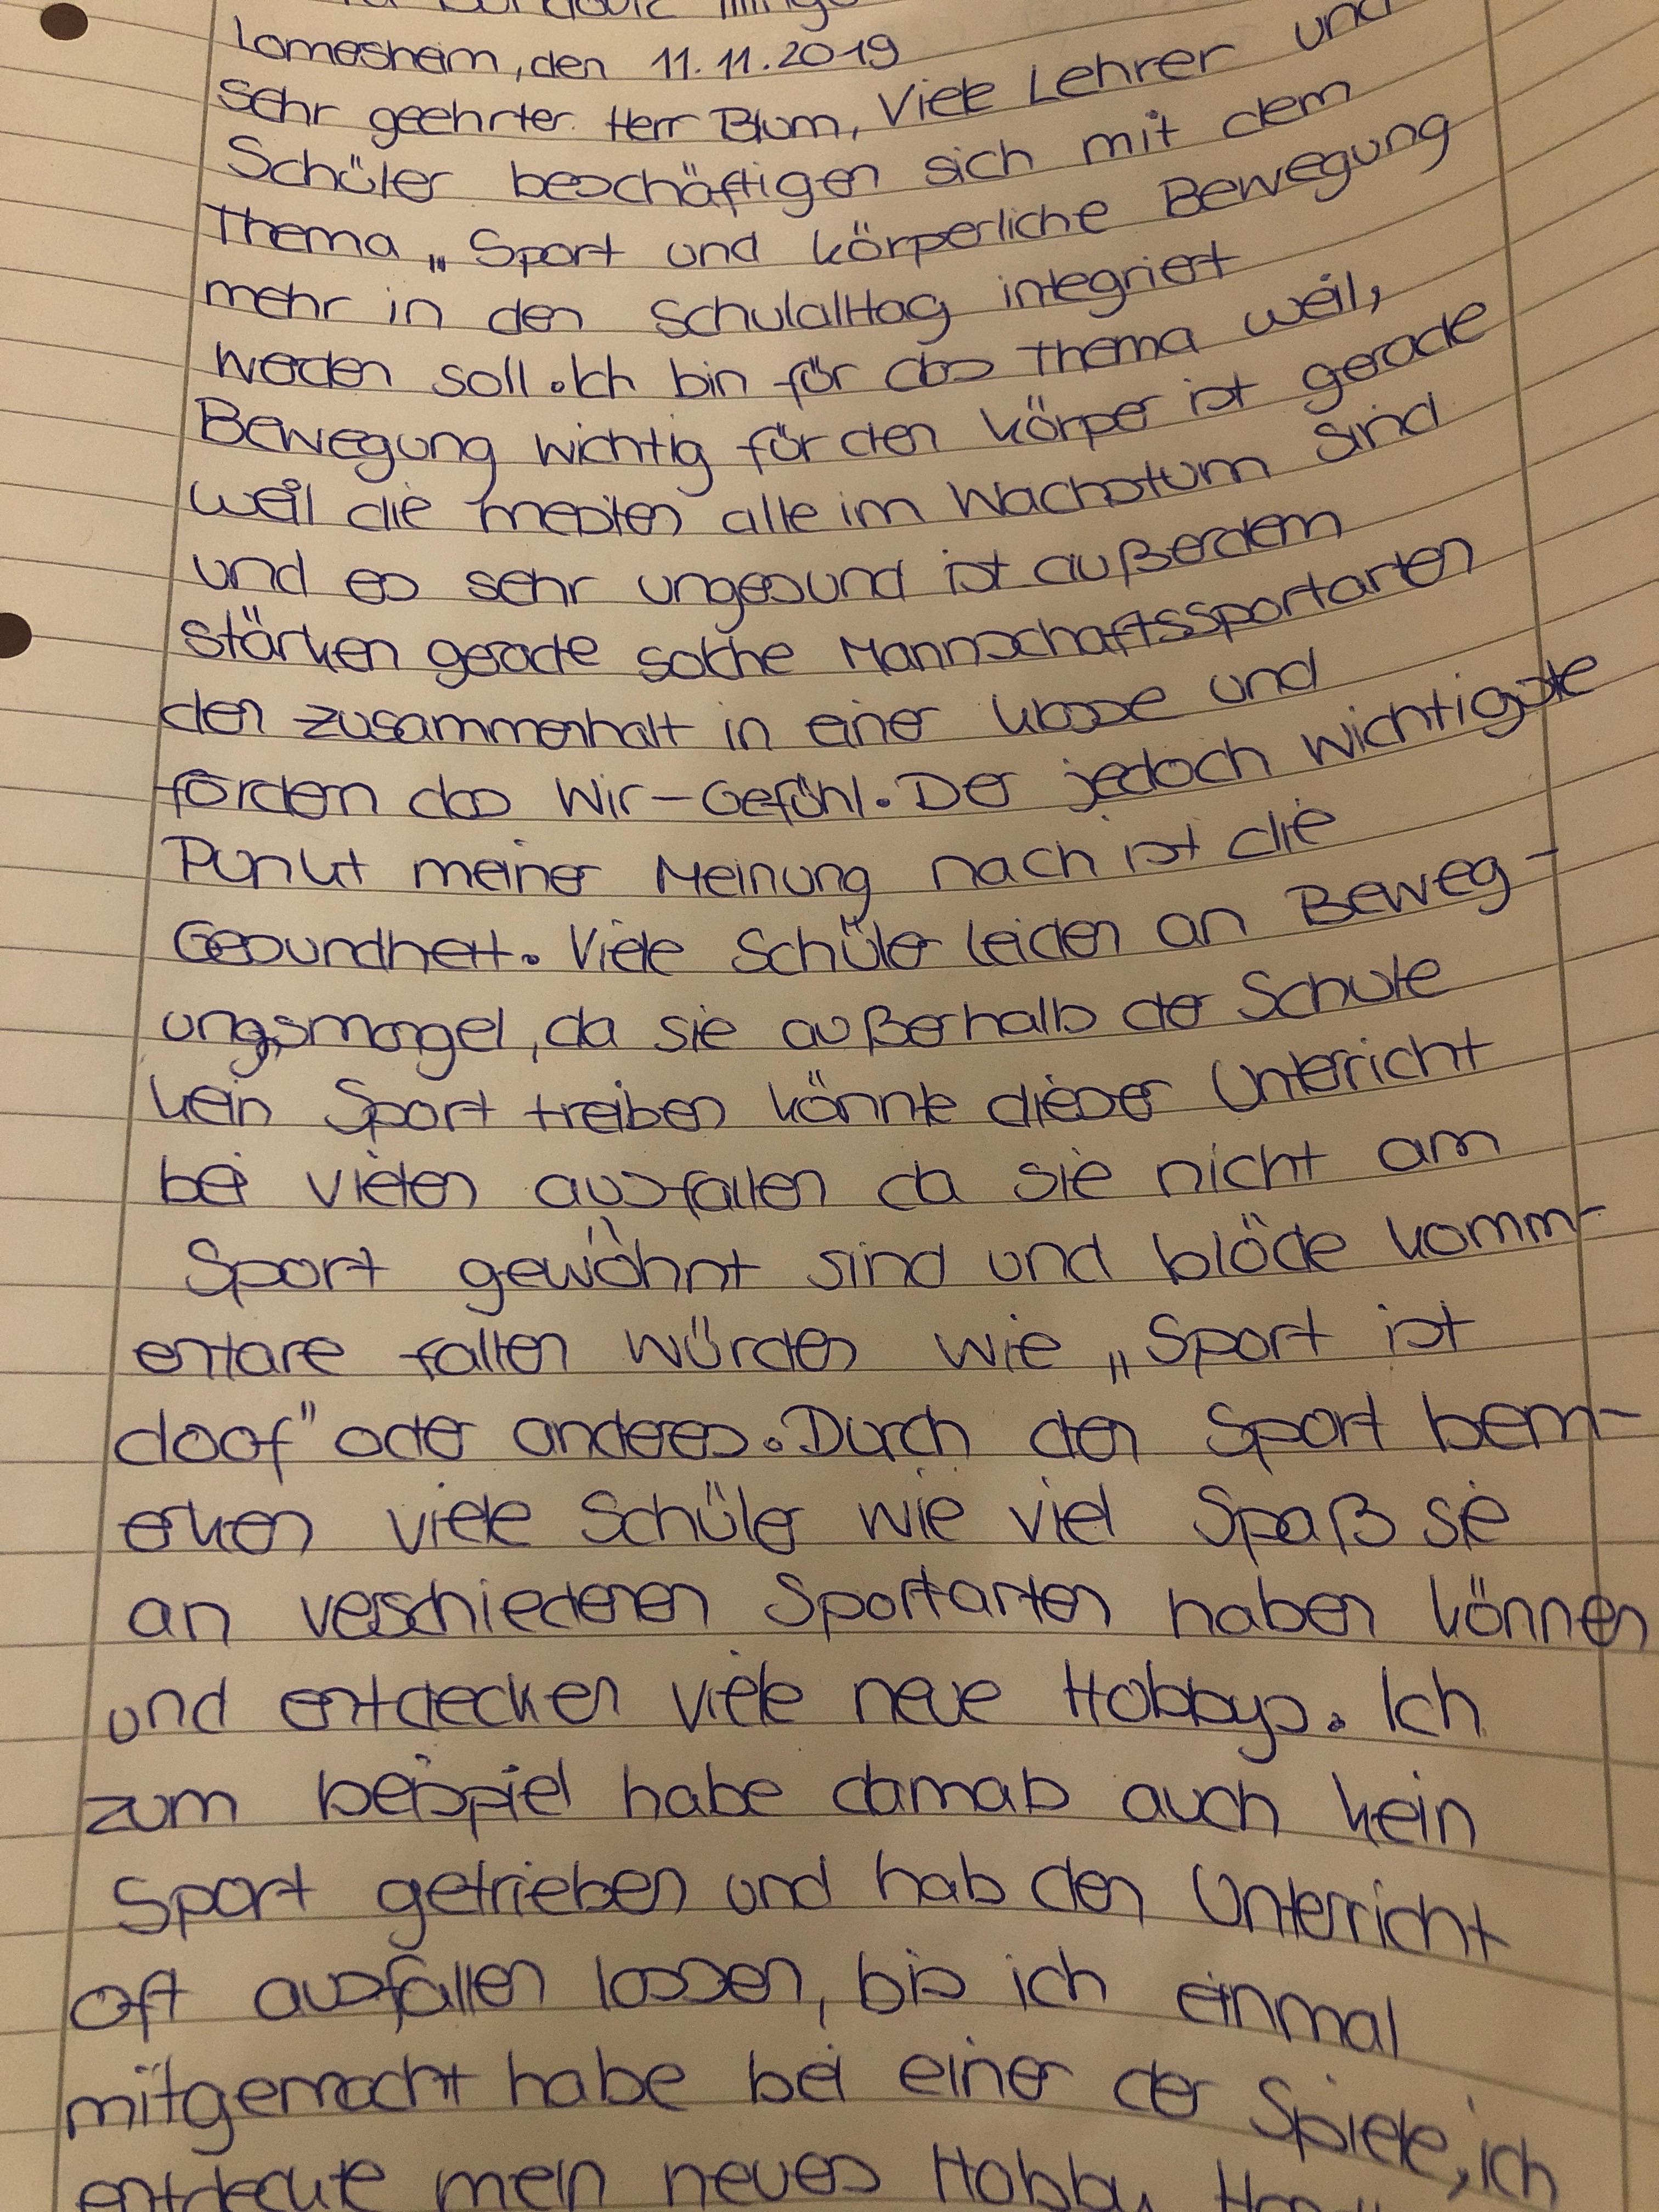 Lomesheim, den 11.11.2019
Sehr geehrter Herr Blum, Viele Lehrer und
Schüler beschäftigen sich mit dem
Thema „Sport und körperliche Bewegung
mehr in den Schulalltag integriert
werden soll. Ich bin für das Thema weil,
Bewegung wichtig für den Körper ist gerade
weil die meisten alle im Wachstum sind
und es sehr ungesund ist außerdem
stärken gerade solche Mannschaftssportarten
den zusammenhalt in einer klasse und
fördern das Wir-Gefühl. Der jedoch wichtigste
Punkt meiner Meinung nach ist die
Gesundheit. Viele Schüler leiden an Beweg-
ungsmangel, da sie außerhalb der Schule
kein Sport treiben könnte dieser Unterricht
bei vielen ausfallen da sie nicht am
Sport gewöhnt sind und blöde komm-
entare fallen würden wie „Sport ist
doof" oder anderes. Durch den Sport bem-
erken viele Schüler wie viel Spaß sie
an verschiedenen Sportarten haben können
und entdecken viele neue Hobbys. Ich
zum beispiel habe damals auch kein
Sport getrieben und hab den Unterricht
oft ausfallen lassen, bis ich einmal
mitgemacht habe bei einer der Spiele, ich
entdeckte mein neues Hobby